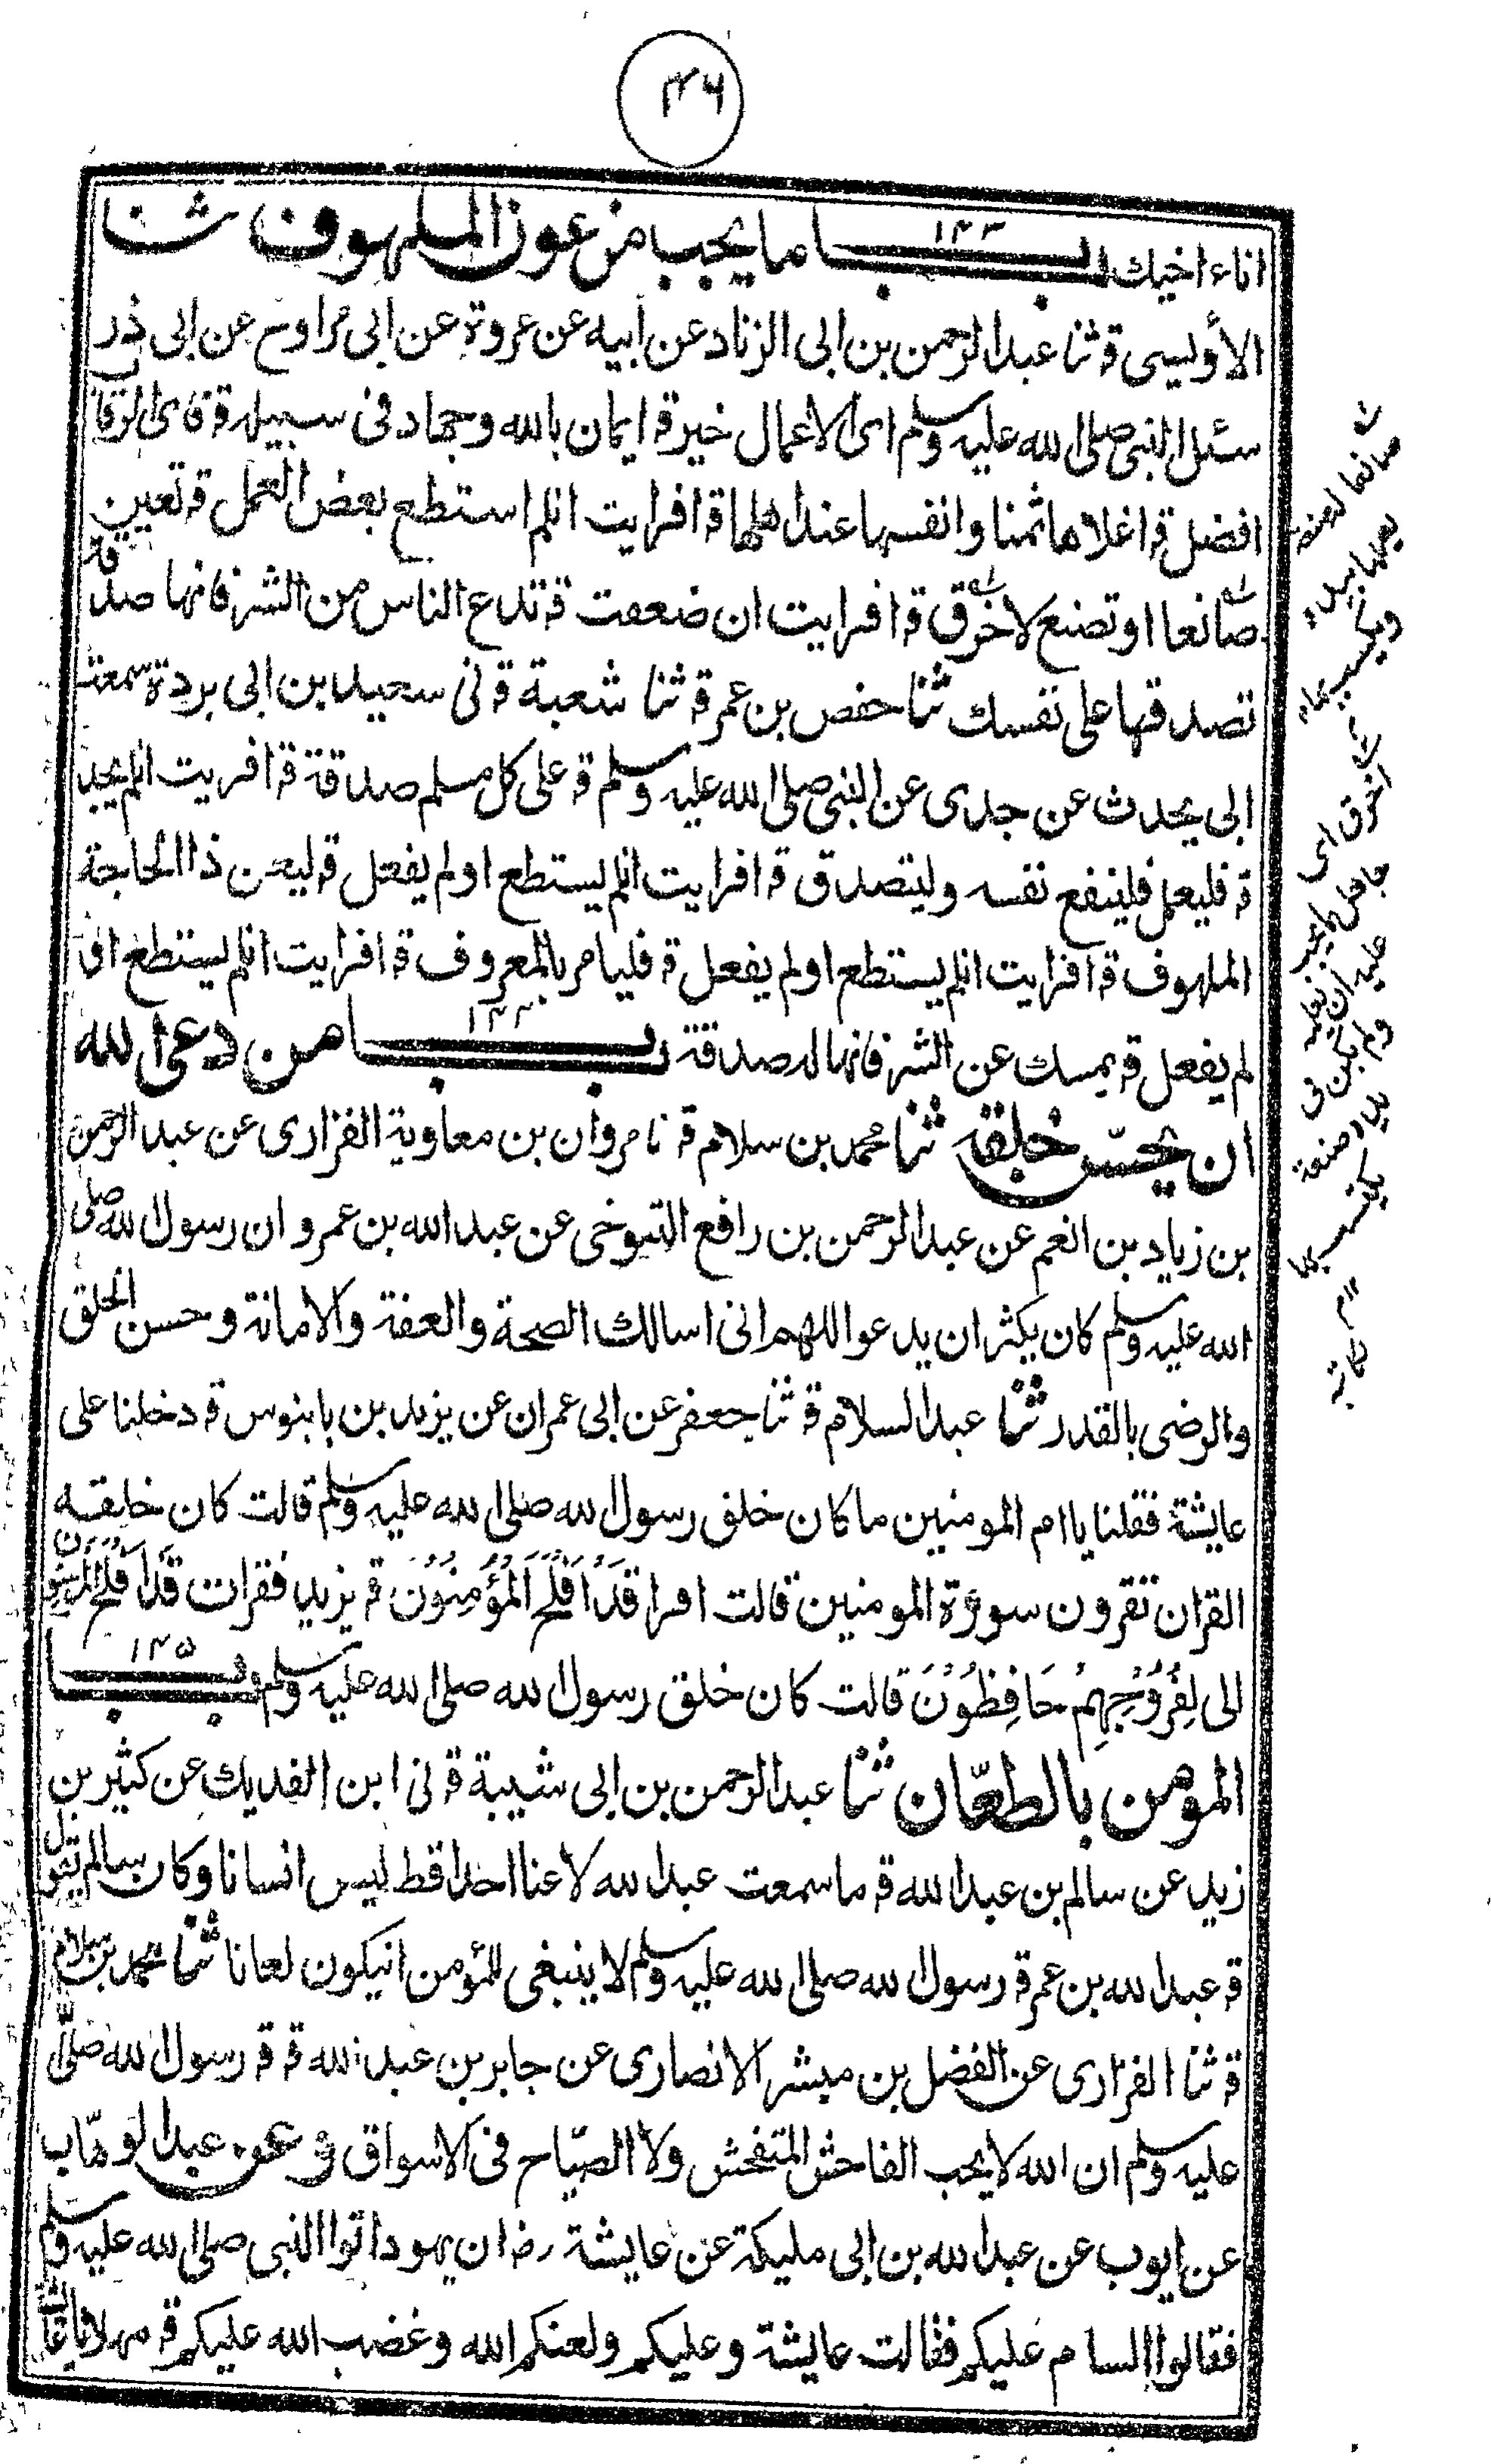 ٤٦
اناء اخيك بـــاب ١٤٣ ما يجب من عون الملهوف ثنا
الأويسى قه ثنا عبد الرحمن بن ابى الزناد عن ابيه عن عروة عن ابى مراوح عن ابى ذر
سئل النبى صلى الله عليه وسلم اى الاعمال خير قه ايمان بالله وجهاد فى سبيله قه فاى الرقاب
افضل قه اغلاها ثمنا وانفسها عند اهلها قه افرايت انلم استطع بعض العمل قه تعين
صانعا او تصنع لاخرق قه افرايت ان ضعفت قه تدع الناس من الشر فانها صدقة
تصدقها على نفسك ثنا حفص بن عمر قه ثنا شعبة قه نى سعيد بن ابى بردة سمعت
ابى يحدث عن جدى عن النبى صلى الله عليه وسلم قه على كل مسلم صدقة قه افريت انلم يجد
قه فليعمل فلينفع نفسه وليتصدق قه افرايت انلم يستطع او لم يفعل قه ليعن ذا الحاجة
الملهوف قه افرايت انلم يستطع او لم يفعل قه فليامر بالمعروف قه افرايت انلم يستطع او
لم يفعل قه يمسك عن الشر فانها له صدقة بـــاب ١٤٤ من دعى الله
ان يحسّن خلقه ثنا محمد بن سلام قه نا مروان بن معاوية الفزارى عن عبد الرحمن
بن زياد بن انعم عن عبد الرحمن بن رافع التنوخى عن عبد الله بن عمرو ان رسول الله صلى
الله عليه وسلم كان يكثر ان يدعو اللهم انى اسالك الصحة والعفة والامانة وحسن الخلق
والرضى بالقدر ثنا عبد السلام قه ثنا جعفر عن ابى عمران عن يزيد بن بابنوس قه دخلنا على
عايشة فقلنا يا ام المومنين ما كان خلق رسول الله صلى الله عليه وسلم قالت كان خلقه
القران تقرون سورة المومنين قالت اقرا قَدْ اَفْلَحَ الْمُؤْمِنُوْنَ قه يزيد فقرات قَدْ اَفْلَحَ الْمُؤْمِنُوْنَ
الى لِفُرُوْجِهِمْ حَافِظُوْنَ قالت كان خلق رسول الله صلى الله عليه وسلم بـــاب ١٤٥
المومن بالطعّان ثنا عبد الرحمن بن ابى شيبة قه نى ابن الفديك عن كثير بن
زيد عن سالم بن عبد الله قه ما سمعت عبد الله لاعنا احدا قط ليس انسانا وكان سالم يقول
قه عبد الله بن عمر قه رسول الله صلى الله عليه وسلم لا ينبغى للمؤمن انيكون لعانا ثنا محمد بن سلام
قه ثنا الفزارى عن الفضل بن مبشر الانصارى عن جابر بن عبد الله قه قه رسول الله صلّى
عليه وسلم ان الله لا يحب الفاحش المتفحش ولا الصيّاح فى الاسواق و عن عبد الوهّاب
عن ايوب عن عبد الله بن ابى مليكة عن عايشة رض ان يهودا اتوا النبى صلى الله عليه وسلم
فقالوا السام عليكم فقالت عايشة وعليكم ولعنكم الله وغضب الله عليكم قه مهلا يا عائشة
صانعا
ويكسب بها
اخرق اى
جاهل
عليه ان
ولم يكن فى
يده صنعة
يكتسب بها